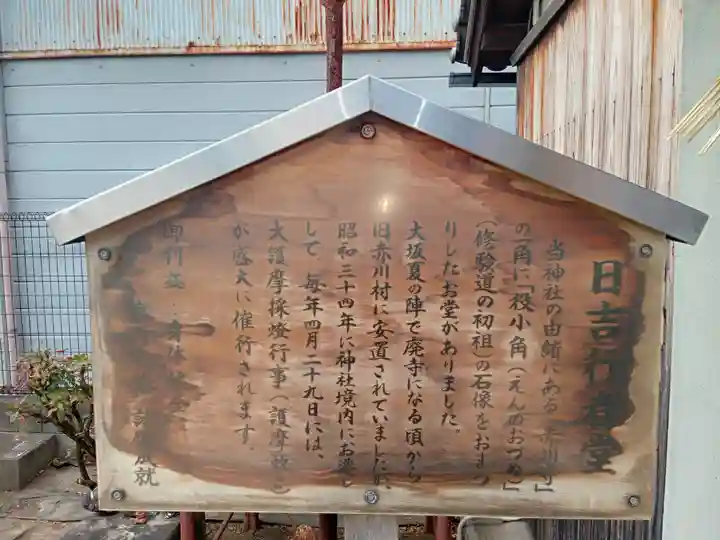 日吉行者堂
当神社の由緒にある「赤川寺」
の一角に「役小角(えんのおづぬ)」
(修験道の初祖)の石像をおまつ
りしたお堂がありました。
大坂夏の陣で廃寺になる頃から
旧赤川村に安置されていましたが、
昭和三十四年に神社境内にお遷し
して 毎年四月二十九日には、
大護摩採燈行事(護摩焚き)
が盛大に催行されます。
御利益
成就